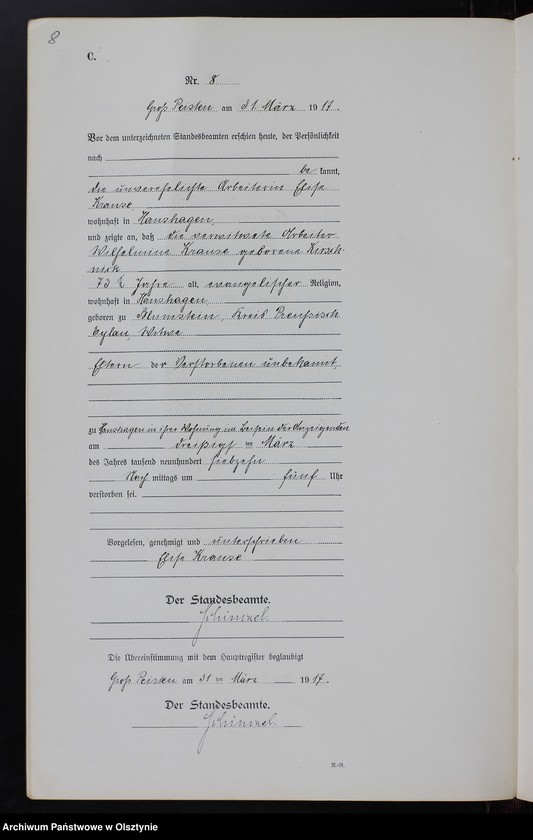 8
C.
Nr. 8
Groß Peisten am 31. März 1917.
Vor dem unterzeichneten Standesbeamten erschien heute, der Persönlichkeit
nach
be kannt,
die unverehelichte Arbeiterin Elise
Krause
wohnhaft in Hanshagen,
und zeigte an, daß die verwitwete Arbeiter
Wilhelmine Krause geborene
73 ½ Jahre alt, evangelischer Religion,
wohnhaft in Hanshagen
geboren zu Kreis Preußisch
Eylau, Witwe
Eltern der Verstorbenen unbekannt,
zu Hanshagen in ihrer Wohnung im Beisein der Anzeigenden
am dreißigst en März
des Jahres tausend neunhundert siebzehn
Nach mittags um fünf Uhr
verstorben sei.
Vorgelesen, genehmigt und unterschrieben
Elise Krause
Der Standesbeamte.
Schimmel.
Die Übereinstimmung mit dem Hauptregister beglaubigt
Groß Peisten am 31 ten März 1917.
Der Standesbeamte.
Schimmel.
R.-R.
Archiwum Państwowe w Olsztynie